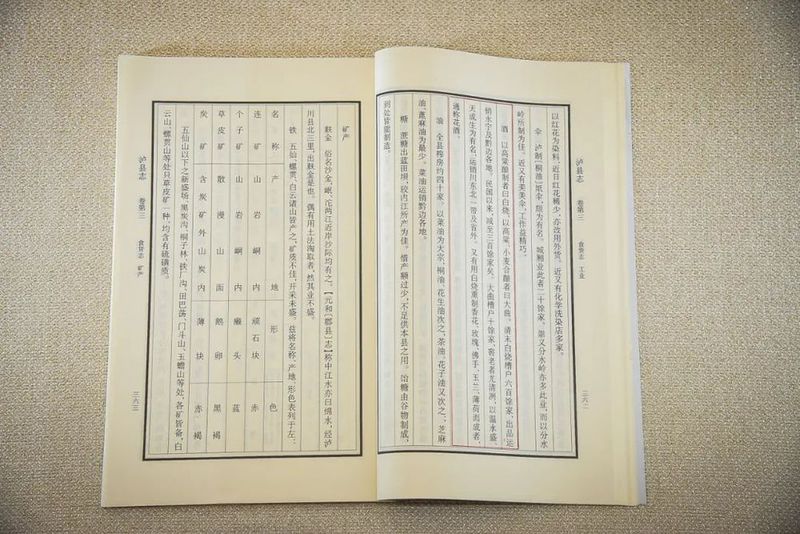 以红花为染料，近日红花稀少，亦改用外货。近又有化学洗染店多家。
伞 泸制［桐油］纸伞，颇为有名。城厢业此者二十馀家。崇义分水岭亦多此业，而以分水
岭所制为佳。近又有美美伞，工作益精巧。
酒 以高粱酿制者曰白烧，以高粱、小麦合酿者曰大曲。清末白烧糟户六百馀家，出品远
销永宁及黔边各地。民国以来，减至三百馀家矣。大曲糟户十馀家，窖老者尤清洌，以温永盛、
天成生为有名。运销川东北一带及省外。又有用白烧熏制香花、玫瑰、佛手、玉兰、薄荷而成者，
通称花酒。
油 全县榨房约四十家。以菜油为大宗，桐油、花生油次之，茶油、花子油又次之，芝麻
油、蓖麻油为最少。菜油运销黔边各地。
糖 蔗糖出蓝田坝，较内江所产为佳。惜产额过少，不足供本县之用。饴糖由谷物制成，
到处皆能制造。
泸县志 卷第三 食货志 工业
三六二
矿产
麸金 俗名沙金，岷、沱两江近岸沙际均有之。［元和［郡县］志］称中江水亦曰绵水，经泸
川县北三里，出麸金是也。偶有用土法淘取者，然其业不盛。
铁 五仙、螺贯、白云诸山皆产之，矿质不佳，开采未盛。兹将名称、产地、形色表列于左：
名称 产地 形 色
连矿 山岩峒内 顽石块 赤
个子矿 山岩峒内 癞头 蓝
草皮矿 散漫山面 鹅卵 黑褐
炭矿 含炭矿外山炭内 薄块 赤褐
五仙山以下之新盛场、黑炭沟、桐子林、铁厂沟、田巴荡、门斗山、玉蟾山等处，各矿皆备，白
云山、螺贯山等处只草皮矿一种，均含有硫磺质。
泸县志 卷第三 食货志 矿产
三六三